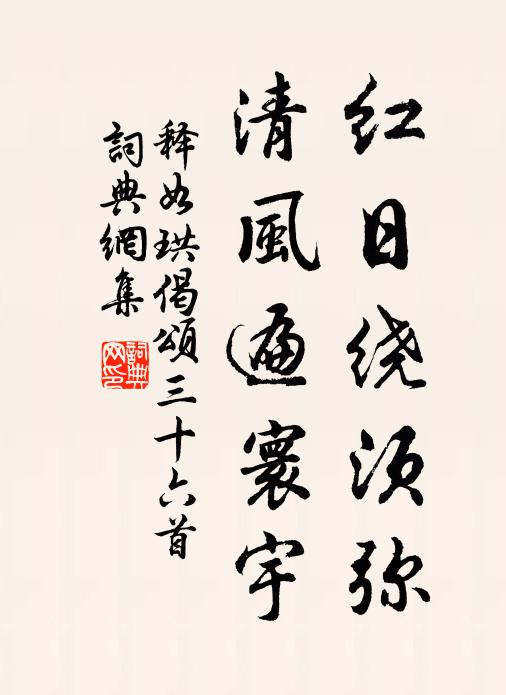 红日绕须弥
清風遍寰宇
释如珙偈頌三十六首
詞典網集
詞典網印